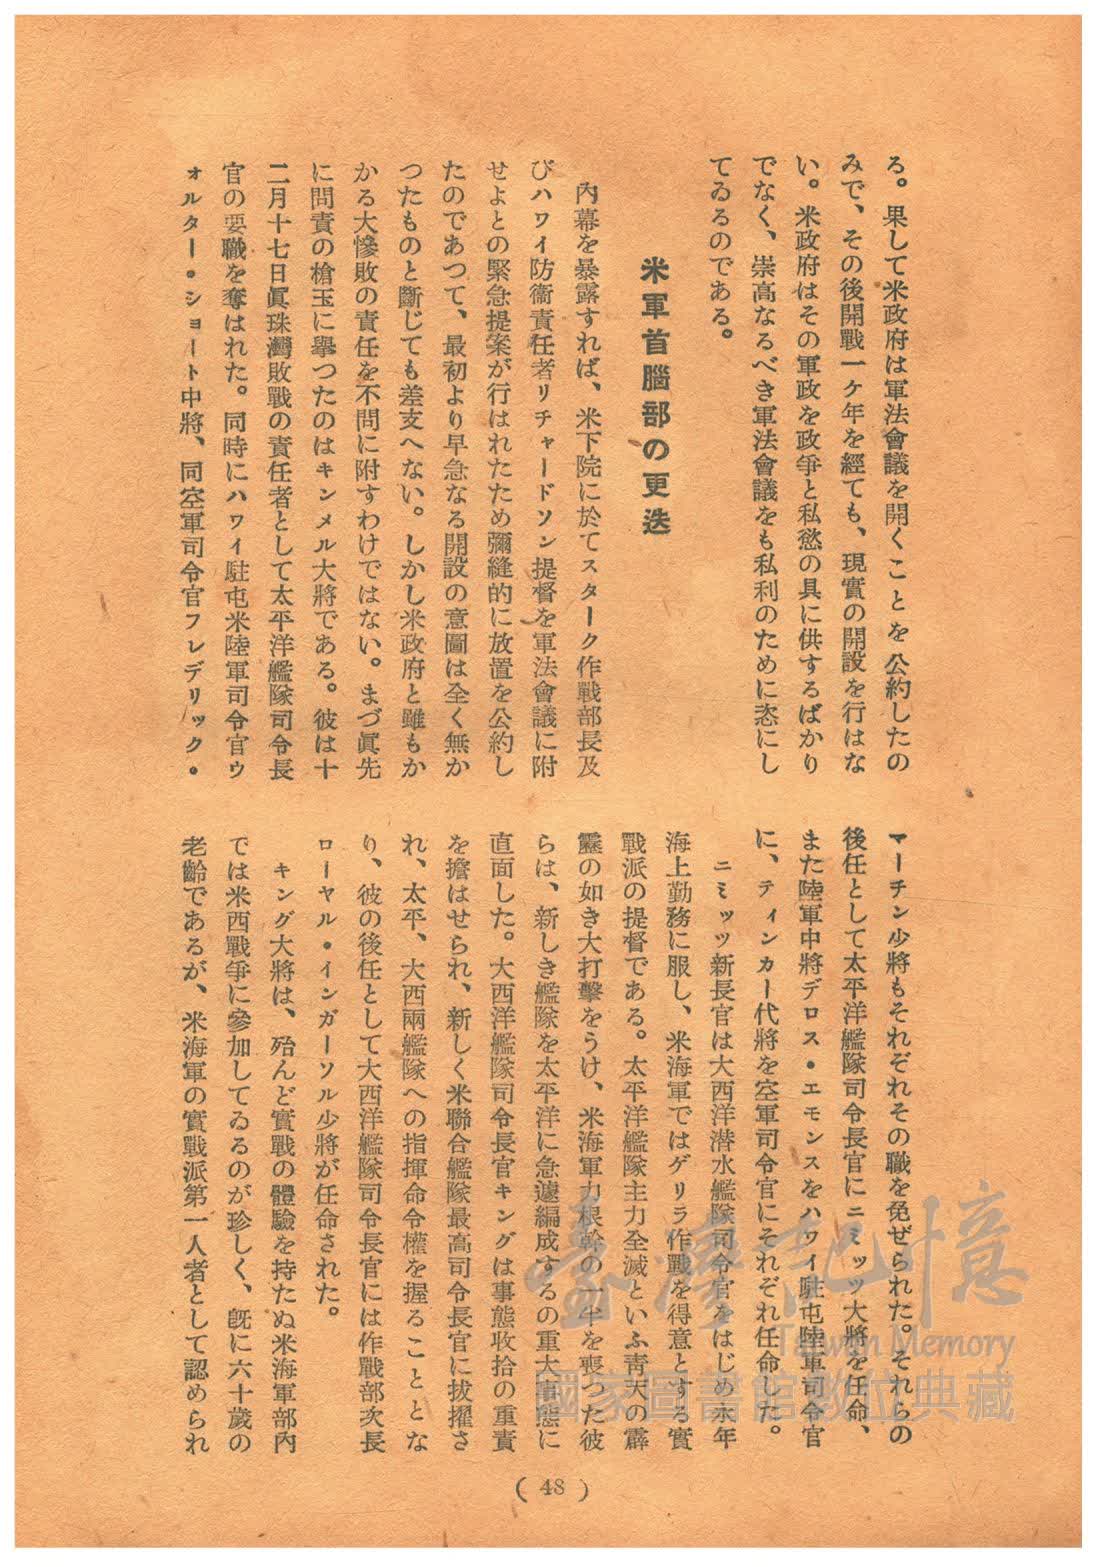 る。果して米政府は軍法會議を開くことを公約したの
みで、その後開戰一ケ年を經ても、現實の開設を行はな
い。米政府はその軍政を政爭と私慾の具に供するばかり
でなく、崇高なるべき軍法會議をも私利のために恣にし
てゐるのである。
米軍首腦部の更迭
內幕を暴露すれば、米下院に於てスターク作戰部長及
びハワイ防衞責任者リチャードソン提督を軍法會議に附
せよとの緊急提案が行はれたため彌縫的に放置を公約し
たのであつて、最初より早急なる開設の意圖は全く無か
つたものと斷じても差支へない。しかし米政府と雖もか
かる大慘敗の責任を不問に附すわけではない。まづ眞先
に問責の槍玉に擧つたのはキンメル大將である。彼は十
二月十七日眞珠灣敗戰の責任者として太平洋艦隊司令長
官の要職を奪はれた。同時にハワイ駐屯米陸軍司令官ウ
ォルター・ショート中將、同空軍司令官フレデリック・
マーチン少將もそれぞれその職を免ぜられた。それらの
後任として太平洋艦隊司令長官にニミッツ大將を任命、
また陸軍中將デロス・エモンスをハワイ駐屯陸軍司令官
に、ティンカー代將を空軍司令官にそれぞれ任命した。
ニミッツ新長官は大西洋潜水艦隊司令官をはじめ永年
海上勤務に服し、米海軍ではゲリラ作戰を得意とする實
戰派の提督である。太平洋艦隊主力全滅といふ靑天の霹
靂の如き大打擊をうけ、米海軍力根幹の一半を喪つた彼
らは、新しき艦隊を太平洋に急遽編成するの重大事態に
直面した。大西洋艦隊司令長官キングは事態收拾の重責
を擔はせられ、新しく米聯合艦隊最高司令長官に拔擢さ
れ、太平、大西兩艦隊への指揮命令權を握ることとな
り、彼の後任として大西洋艦隊司令長官には作戰部次長
ローヤル・インガーソル少將が任命された。
キング大將は、殆んど實戰の體驗を持たぬ米海軍部內
では米西戰爭に參加してゐるのが珍しく、旣に六十歲の
老齡であるが、米海軍の實戰派第一人者として認められ
(48)
臺灣記憶
Taiwan Memory
國家圖書館數位典藏